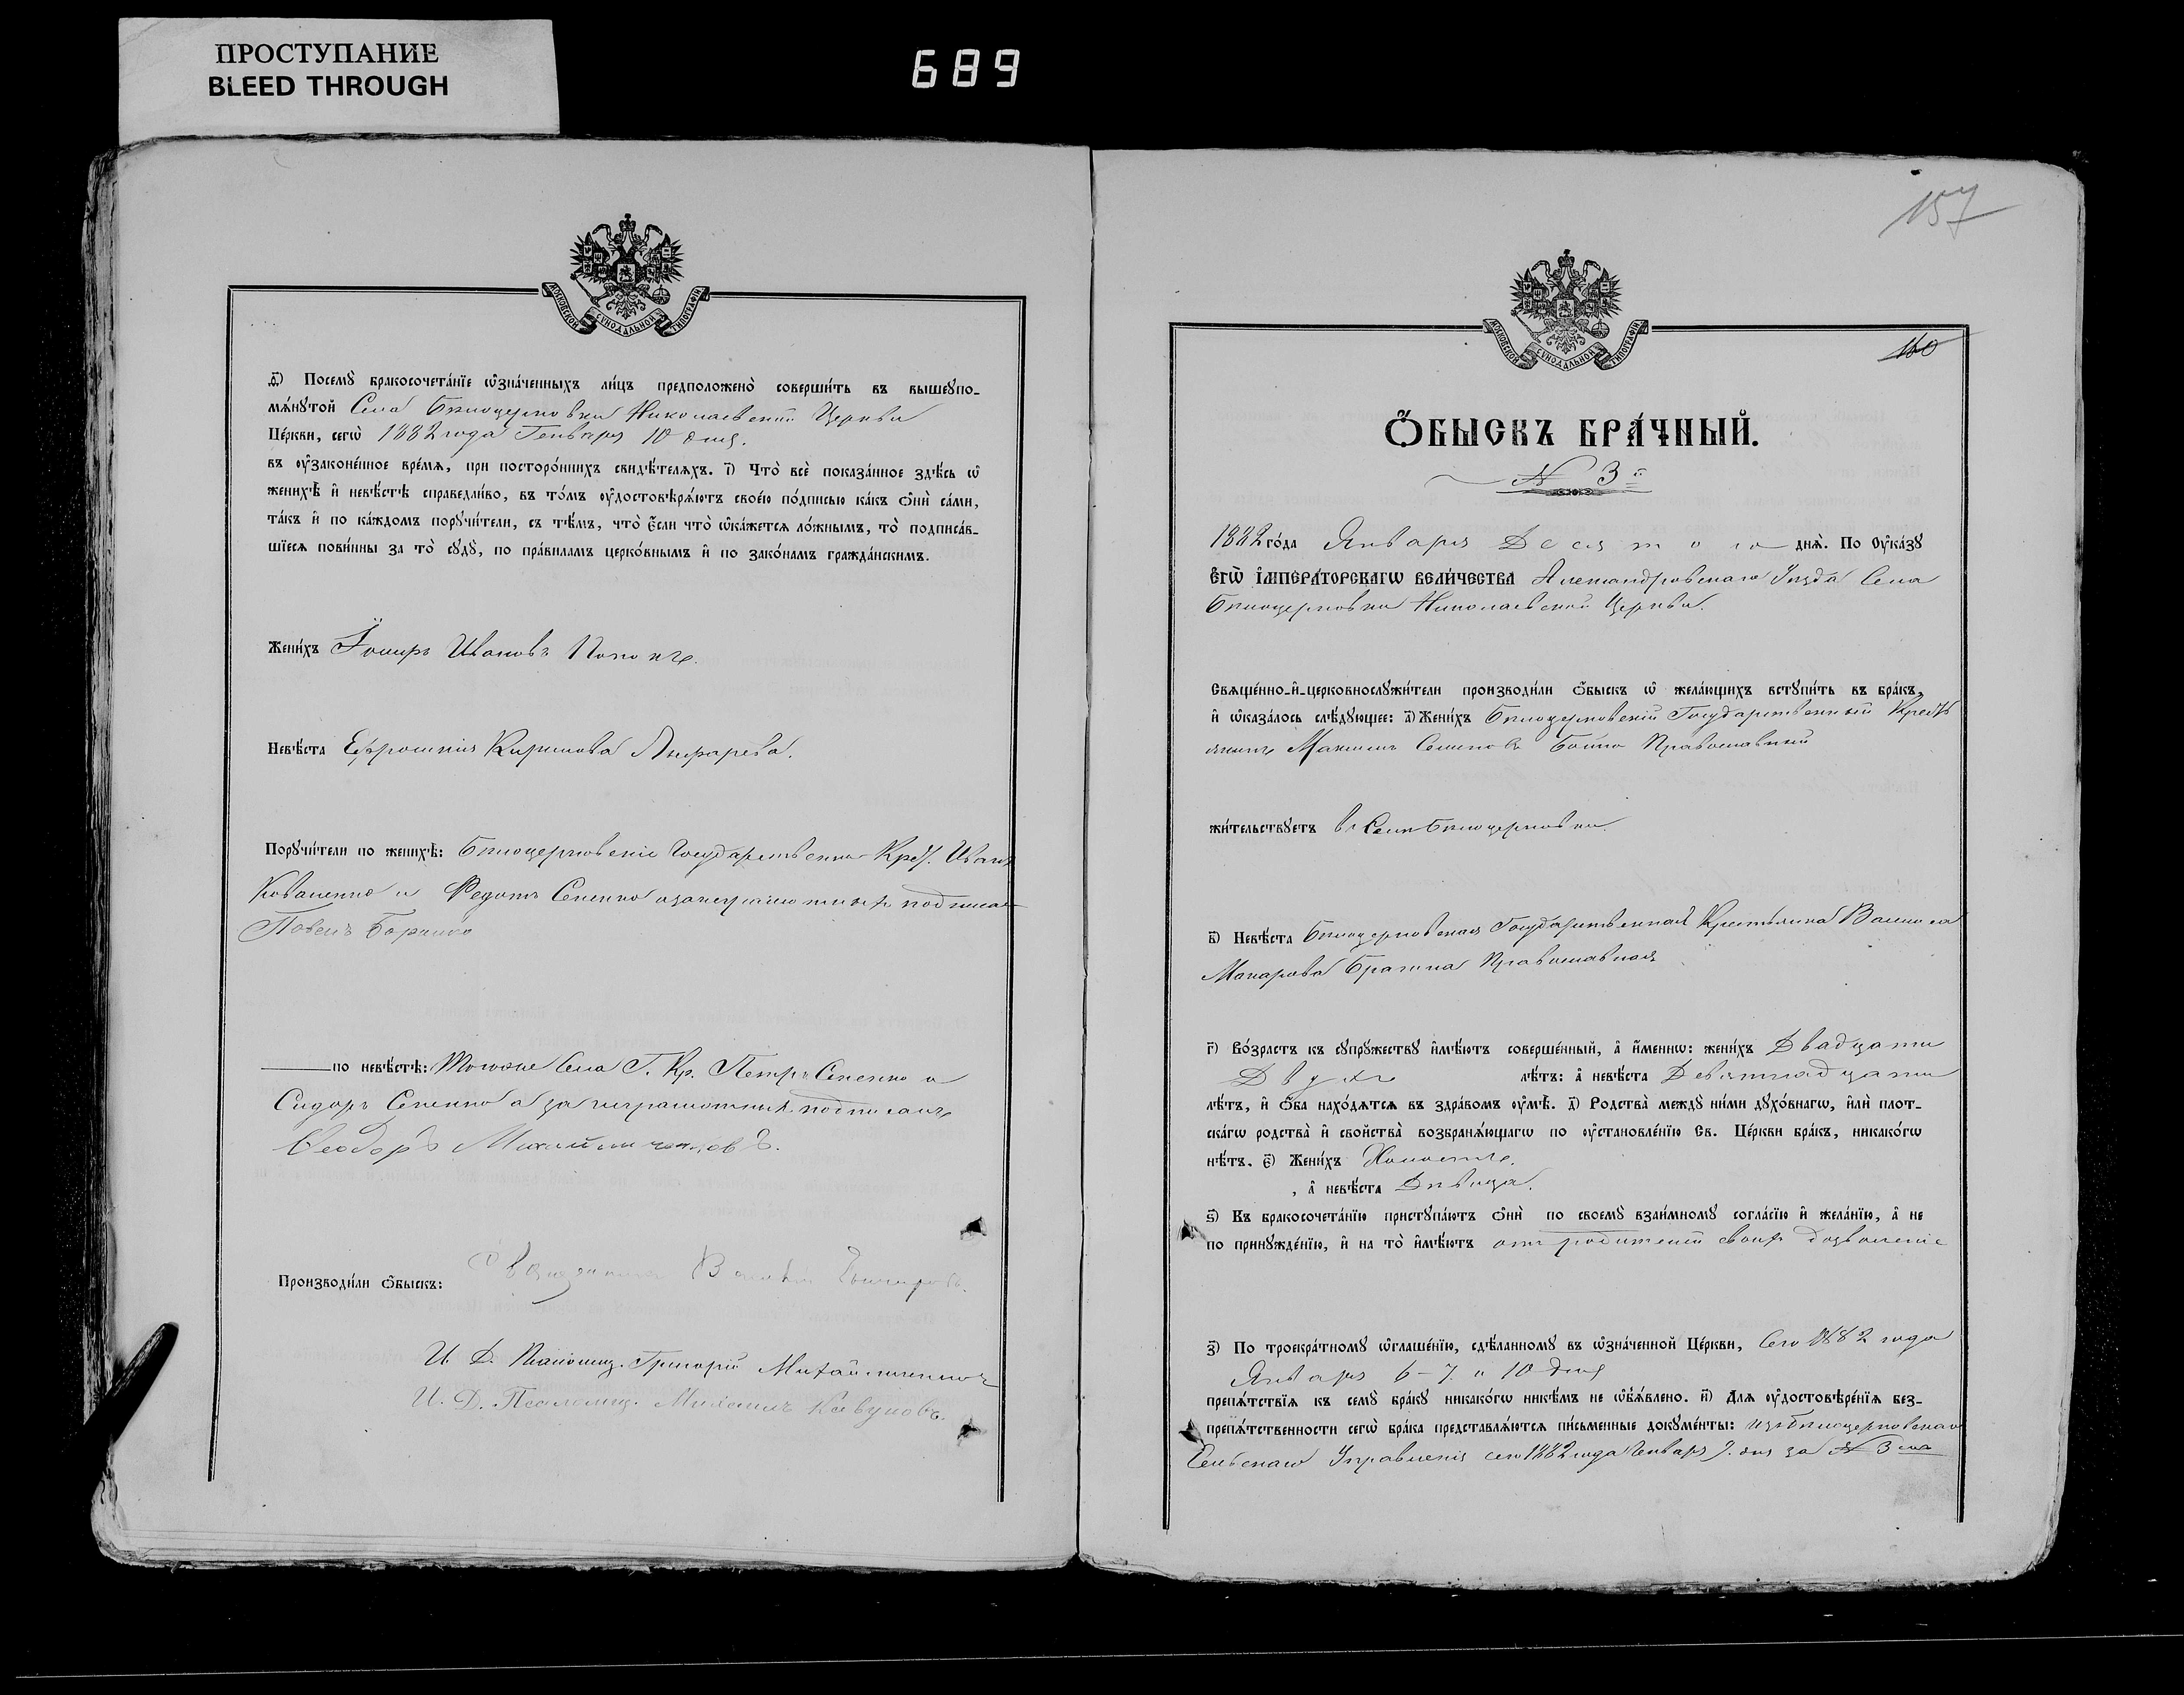 ПРОСТУПАНИЕ
BLEED THROUGH
689
МОСКОВСКОЙ СѴНОДАЛЬНОЙ ТИПОГРАФІИ
ѳ҃) Посемꙋ̀ бракосочета́нїе ѡ҆зна́ченныхъ ли́цъ предположено̀ соверши́ть въ вышеꙋпо-
мѧ́нꙋтой Села Бѣлоцерковки Николаевской Церкви
Це́ркви, сегѡ̀ 1882 года Генваря 10 дня.
въ ѹ҆законе́нное вре́мѧ, при посторо́ннихъ свидѣ́телѧхъ. і҃) Что̀ всѐ показа́нное здѣ́сь ѡ҆
женихѣ̀ и҆ невѣ́стѣ справедли́во, въ то́мъ ѹ҆достовѣрѧ́ютъ свое́ю по́дписью ка́къ ѻ҆нѝ са́ми,
та́къ и҆ по ка́ждомъ порꙋчи́тели, съ тѣ́мъ, что̀ є҆́сли что̀ ѡ҆ка́жетсѧ ло́жнымъ, то̀ подписа́в-
шїесѧ пови́нны за то̀ сꙋдꙋ̀, по пра́виламъ церко́внымъ и҆ по зако́намъ гражда́нскимъ.
Жени́хъ Иванов
Невѣ́ста Ефросинія Кирилова
Порꙋчи́тели по женихѣ̀: Бѣлоцерковскіе Государственн Крест. Иванъ
Коваленко и Федотъ Сененко а за неграмотныхъ подписал
Павелъ Борошко
по невѣ́стѣ: Тогоже Села Г. Кр. Петръ Сененко и
Сидоръ Сененко а за неграмотныхъ подписалъ
Ѳеодоръ Михайличенковъ.
Производи́ли ѻ҆́быскъ: Священникъ
И. Д. Псаломщ. Григорій Михайличенко
И. Д. Псаломщ. Михаилъ Кавуновъ.
157
МОСКОВСКОЙ СѴНОДАЛЬНОЙ ТИПОГРАФІИ
160
Ѻ҆́БЫСКЪ БРА́ЧНЫЙ.
N 3
1882 го́да Января Десятого днѧ̀. По Ѹ҆ка́зꙋ
Є҆ГѠ̀ І҆МПЕРА́ТОРСКАГѠ ВЕЛИ́ЧЕСТВА Александровскаго Уѣзда Села
Бѣлоцерковки Николаевской Церкви.
Свѧще́нно-и҆-церковнослꙋжи́тели производи́ли ѻ҆́быскъ ѡ҆ жела́ющихъ встꙋпи́ть въ бра́къ,
и҆ ѡ҆каза́лось слѣ́дꙋющее: а҃) Жени́хъ Бѣлоцерковскій Государственный Кресть
янинъ Максимъ Семеновъ Бойко Православный
жи́тельствꙋетъ въ Селѣ Бѣлоцерковки.
в҃) Невѣ́ста Бѣлоцерковская Государственная Крестьянка
Макарова Православная
г҃) Во́зрастъ къ сꙋпрꙋ́жествꙋ и҆мѣ́ютъ соверше́нный, а҆ и҆́меннѡ: жени́хъ Двадцати
Двухъ лѣ́тъ: а҆ невѣ́ста Девятнадцати
лѣ́тъ, и҆ ѻ҆́ба нахо́дѧтсѧ въ здра́вомъ ѹ҆мѣ̀. д҃) Родства̀ междꙋ ни́ми дꙋхо́внагѡ, и҆лѝ плот-
ска́гѡ родства̀ и҆ сво́йства̀ возбранѧ́ющагѡ по ѹ҆становле́нїю Св. Це́ркви бра́къ, никако́гѡ
нѣ́тъ. є҃) Жени́хъ Холостъ,
, а҆ невѣ́ста Дѣвица.
ѕ҃) Къ бракосочета́нїю пристꙋпа́ютъ ѻ҆нѝ по своемꙋ̀ взаи́мномꙋ согла́сїю и҆ жела́нїю, а҆ не
по принꙋжде́нїю, и҆ на то̀ и҆мѣ́ютъ отъ родителей своихъ дозволеніе
з҃) По троекра́тномꙋ ѡ҆глаше́нїю, сдѣ́ланномꙋ въ ѡ҆зна́ченной Це́ркви, Сего 1882 года
Января 6 - 7. и 10 дня
препѧ́тствїѧ къ семꙋ̀ бра́кꙋ никако́гѡ никѣ́мъ не ѡ҆б̾ѧ́влено. и҃) Длѧ ѹ҆достовѣре́нїѧ без-
препѧ́тственности сегѡ̀ бра́ка представлѧ́ютсѧ пи́сьменные докꙋме́нты: изъ Бѣлоцерковскаго
Сельскаго Управленія сего 1882 года Генваря 9. дня за N 3